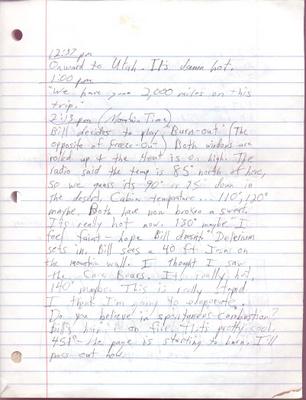 12:37 pm
Onward to Utah. It's damn hot.
1:00 pm
"We have gone 2,000 miles on this
trip."
2:13 pm (Mountain Time)
Bill decides to play "Burn-out" (The
opposite of Freeze-Out). Both windows are
rolled up & the Heat is on high. The
radio said the temp is 85° north of here,
so we guess its 90° or 95° down in
the desert. Cabin temperature... 110°, 120°
maybe. Both have now broken a sweat.
It's really hot now. 130° maybe. I
feel faint - hope Bill doesn't. Delerium
sets in. Bill sees a 40 ft. on
the mountain wall. I thought I saw
the Care Bears. It's really hot,
140° maybe. This is really stupid
I think I'm going to evaporate.
Do you believe in spontaneous combustion?
Bill's hair is on fire. That's pretty cool.
451° - the page is starting to burn. I'll
pass out now.